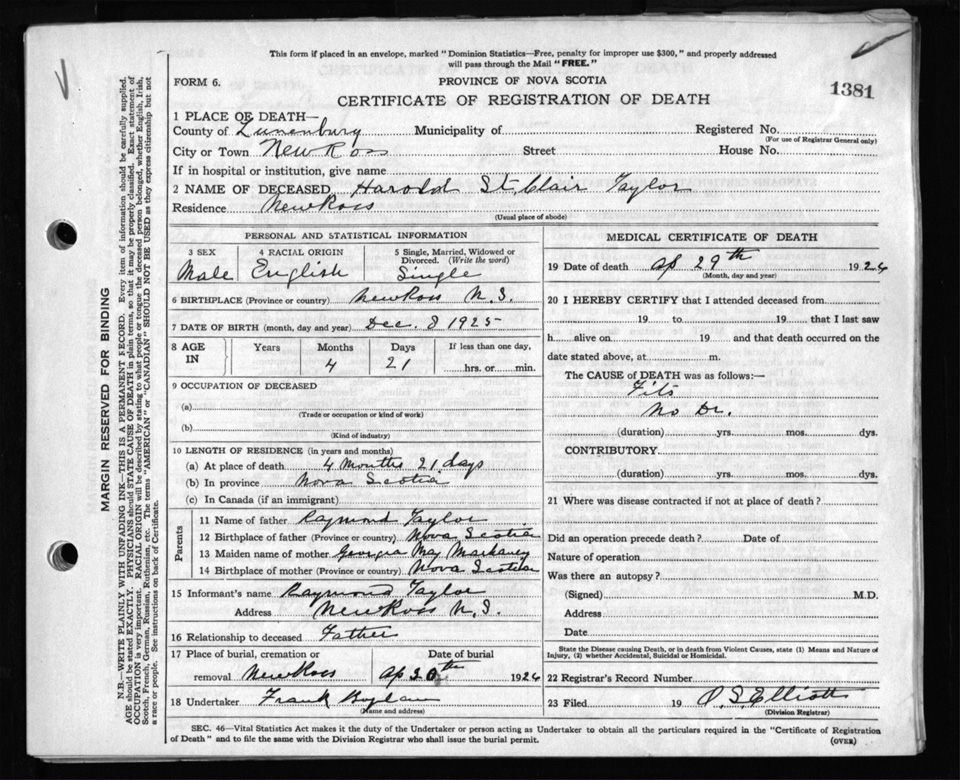 This form if placed in an envelope, marked "Dominion Statistics—Free, penalty for improper use $300," and properly addressed
will pass through the Mail "FREE."
FORM 6.
PROVINCE OF NOVA SCOTIA
1381
CERTIFICATE OF REGISTRATION OF DEATH
1 PLACE OF DEATH—
County of Lunenburg Municipality of Registered No.
(For use of Registrar General only)
City or Town New Ross Street House No.
If in hospital or institution, give name
2 NAME OF DECEASED Harold St. Clair Taylor
Residence New Ross
(Usual place of abode)
PERSONAL AND STATISTICAL INFORMATION
3 SEX 4 RACIAL ORIGIN 5 Single, Married, Widowed or Divorced. (Write the word)
Male English Single
6 BIRTHPLACE (Province or country) New Ross N. S.
7 DATE OF BIRTH (month, day and year) Dec. 8 1925
8 AGE IN Years Months Days If less than one day,
4 21 hrs. or min.
9 OCCUPATION OF DECEASED
(a)
(Trade or occupation or kind of work)
(b)
(Kind of industry)
10 LENGTH OF RESIDENCE (in years and months)
(a) At place of death 4 months 21 days
(b) In province Nova Scotia
(c) In Canada (if an immigrant)
Parents
11 Name of father Raymond Taylor
12 Birthplace of father (Province or country) Nova Scotia
13 Maiden name of mother Georgia May
14 Birthplace of mother (Province or country) Nova Scotia
15 Informant's name Raymond Taylor
Address New Ross N. S.
16 Relationship to deceased Father
17 Place of burial, cremation or removal New Ross
Date of burial
Ap 30th 1926
18 Undertaker Frank
(Name and address)
MEDICAL CERTIFICATE OF DEATH
19 Date of death Ap 29th 1926
(Month, day and year)
20 I HEREBY CERTIFY that I attended deceased from
19 to 19 that I last saw
h alive on 19 and that death occurred on the
date stated above, at m.
The CAUSE of DEATH was as follows:—
Fits
No Dr.
(duration) yrs. mos. dys.
CONTRIBUTORY
(duration) yrs. mos. dys.
21 Where was disease contracted if not at place of death?
Did an operation precede death? Date of
Nature of operation
Was there an autopsy?
(Signed) M.D.
Address
Date
State the Disease causing Death, or in death from Violent Causes, state (1) Means and Nature of
Injury, (2) whether Accidental, Suicidal or Homicidal.
22 Registrar's Record Number
23 Filed 19 O. S. Elliott
(Division Registrar)
SEC. 46—Vital Statistics Act makes it the duty of the Undertaker or person acting as Undertaker to obtain all the particulars required in the "Certificate of Registration
of Death" and to file the same with the Division Registrar who shall issue the burial permit.
(OVER)
MARGIN RESERVED FOR BINDING
N.B.—WRITE PLAINLY WITH UNFADING INK—THIS IS A PERMANENT RECORD. Every item of information should be carefully supplied.
AGE should be stated EXACTLY. PHYSICIANS should STATE CAUSE OF DEATH in plain terms, so that it may be properly classified. Exact statement of
OCCUPATION is very important. RACIAL ORIGIN will be described by stating to what people or tongue the deceased person belonged, whether English, Irish,
Scotch, French, German, Russian, Ruthenian, etc. The terms "AMERICAN" or "CANADIAN" SHOULD NOT BE USED as they express citizenship but not
a race or people. See instructions on back of Certificate.